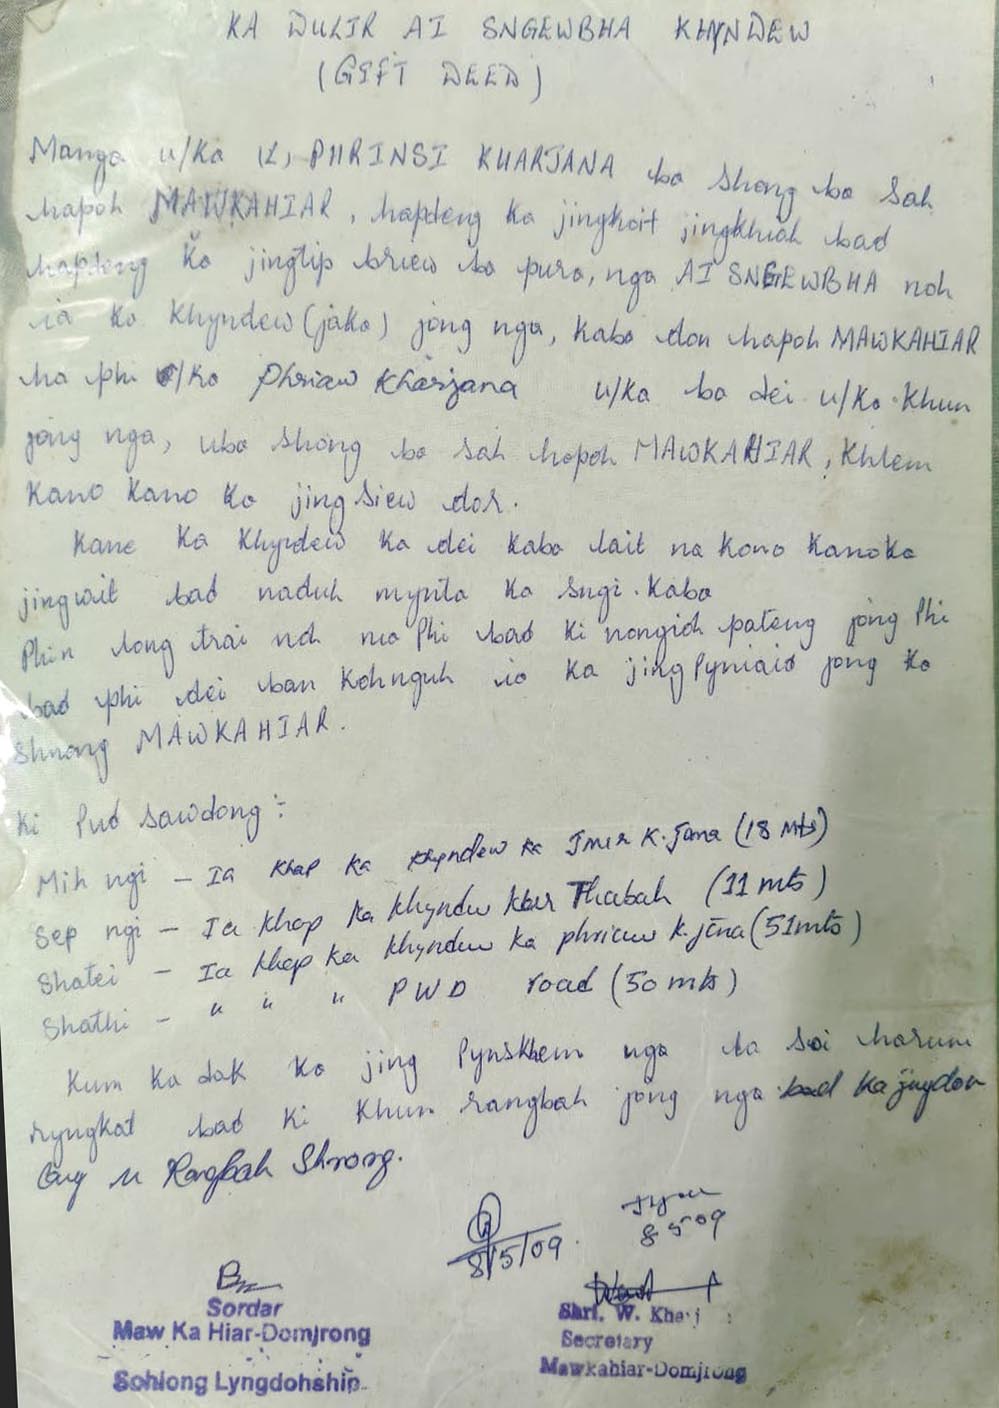 KA DULIR AI SNGEWBHA KHYNDEW
(GIFT DEED)
Manga u/Ka (L) PHRINSI KHARJANA ba shong ba sah
hapoh MAWKAHIAR, hapdeng ka jingkoit jingkhiah bad
hapdeng Ka jingtip briew ba pura, nga AI SNGEWBHA noh
ia ka Khyndew (jaka) jong nga, Kaba don hapoh MAWKAHIAR
ha phi u/Ka Phriaw Kharjana u/Ka ba dei u/Ka Khun
jong nga, uba shong ba sah hapoh MAWKAHIAR, Khlem
Kano Kano Ka jing siew dor.
Kane Ka Khyndew Ka dei Kaba lait na Kano KanoKa
jingwit bad naduh mynta Ka sngi. Kaba
Phin long trai noh ma Phi bad Ki nongioh pateng jong Phi
bad phi dei ban Kohnguh ia Ka jingPyniaid jong Ka
Shnong MAWKAHIAR.
Ki Pud sawdong :-
Mih ngi - Ia Khap ka Khyndew ka K. Jana (18 Mts)
Sep ngi - Ia Khap Ka Khyndew Thabah (11 mts)
Shatei - Ia Khap Ka Khyndew Ka phriaw K. jana (51mts)
Shathi - " " " PWD road (50 mts)
Kum Ka dak Ka jing Pynskhem nga la soi harum
ryngkat bad Ki Khun rangbah jong nga bad Ka jingdon
lang u Rangbah Shnong.
8/5/09.
8 5 09
Sordar
Maw Ka Hiar-Domjrong
Sohiong Lyngdohship.
Shri. W. Kharj
Secretary
Mawkahiar-Domjrong